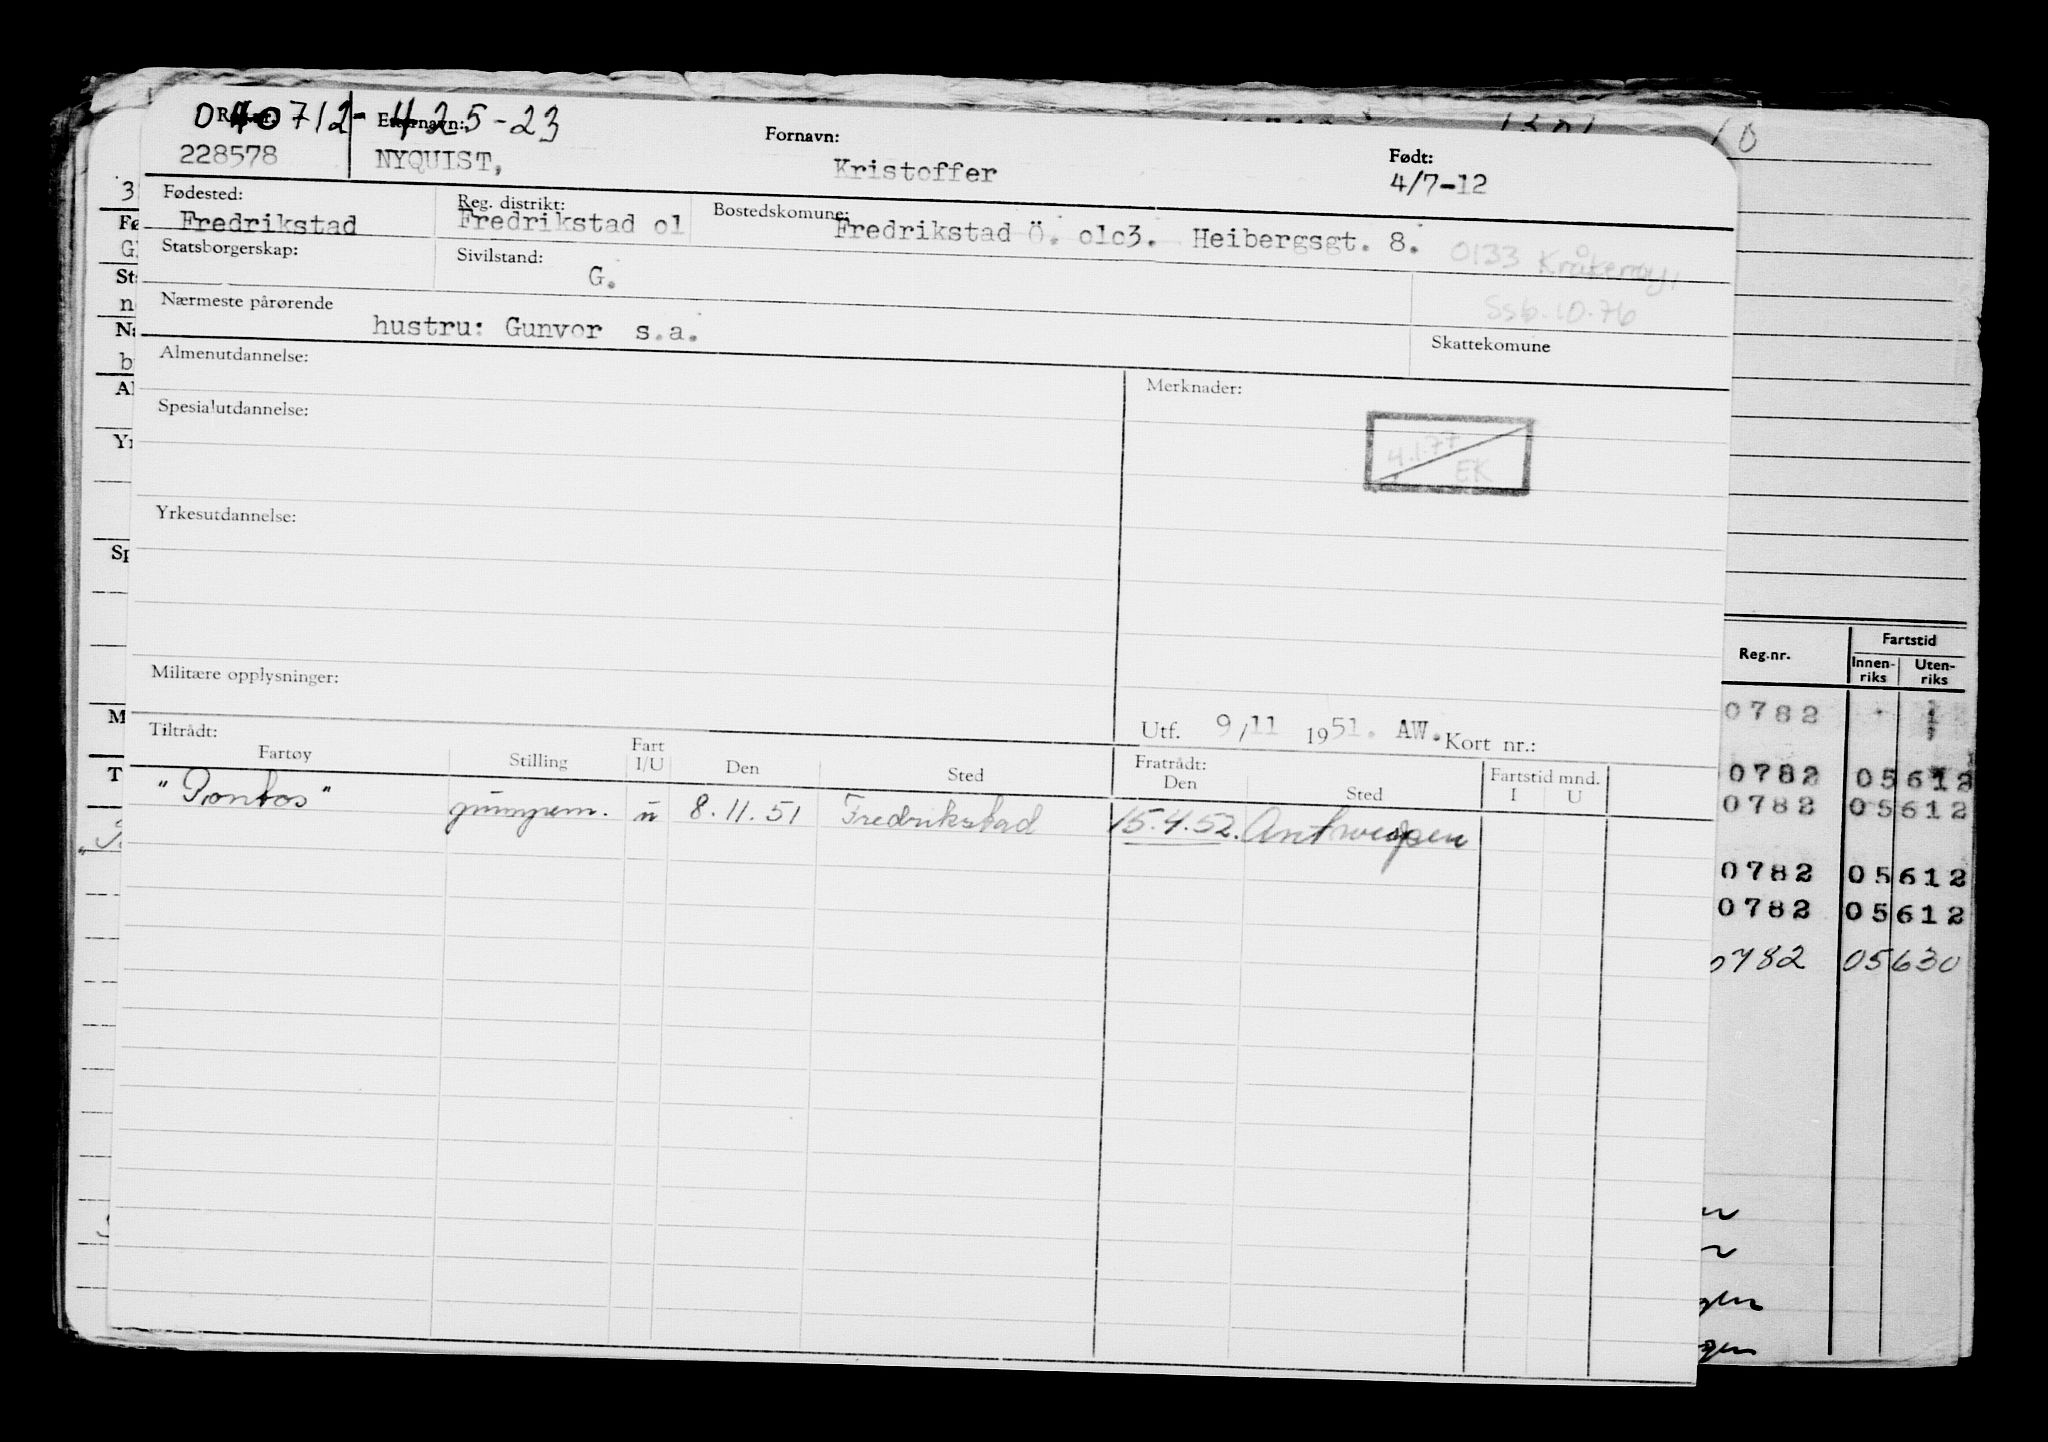 040712-42523
R.l.nr. Etternavn: Fornavn: Født:
228578 NYQUIST, Kristoffer 4/7-12
Fødested: Reg. distrikt: Bostedskomune:
Fredrikstad Fredrikstad o1 Fredrikstad Ö. olc3. Heibergsgt. 8. 0133 Kråkerøy,
Statsborgerskap: Sivilstand:
G. Ssb.10.76
Nærmeste pårørende
hustru: Gunvor s.a. Skattekomune
Almenutdannelse: Merknader:
Spesialutdannelse:
4.1.77
EK
Yrkesutdannelse:
Militære opplysninger:
Utf. 9/11 1951. AW. Kort nr.:
Tiltrådt: Fratrådt:
Fartøy Stilling Fart I/U Den Sted Den Sted Fartstid mnd. I U
"Pontos" u 8.11.51 Fredrikstad 15.4.52. Antwerpen
Reg.nr. Fartstid
Innen-riks Uten-riks
0782
0782 05612
0782 05612
0782 05612
0782 05612
0782 05630